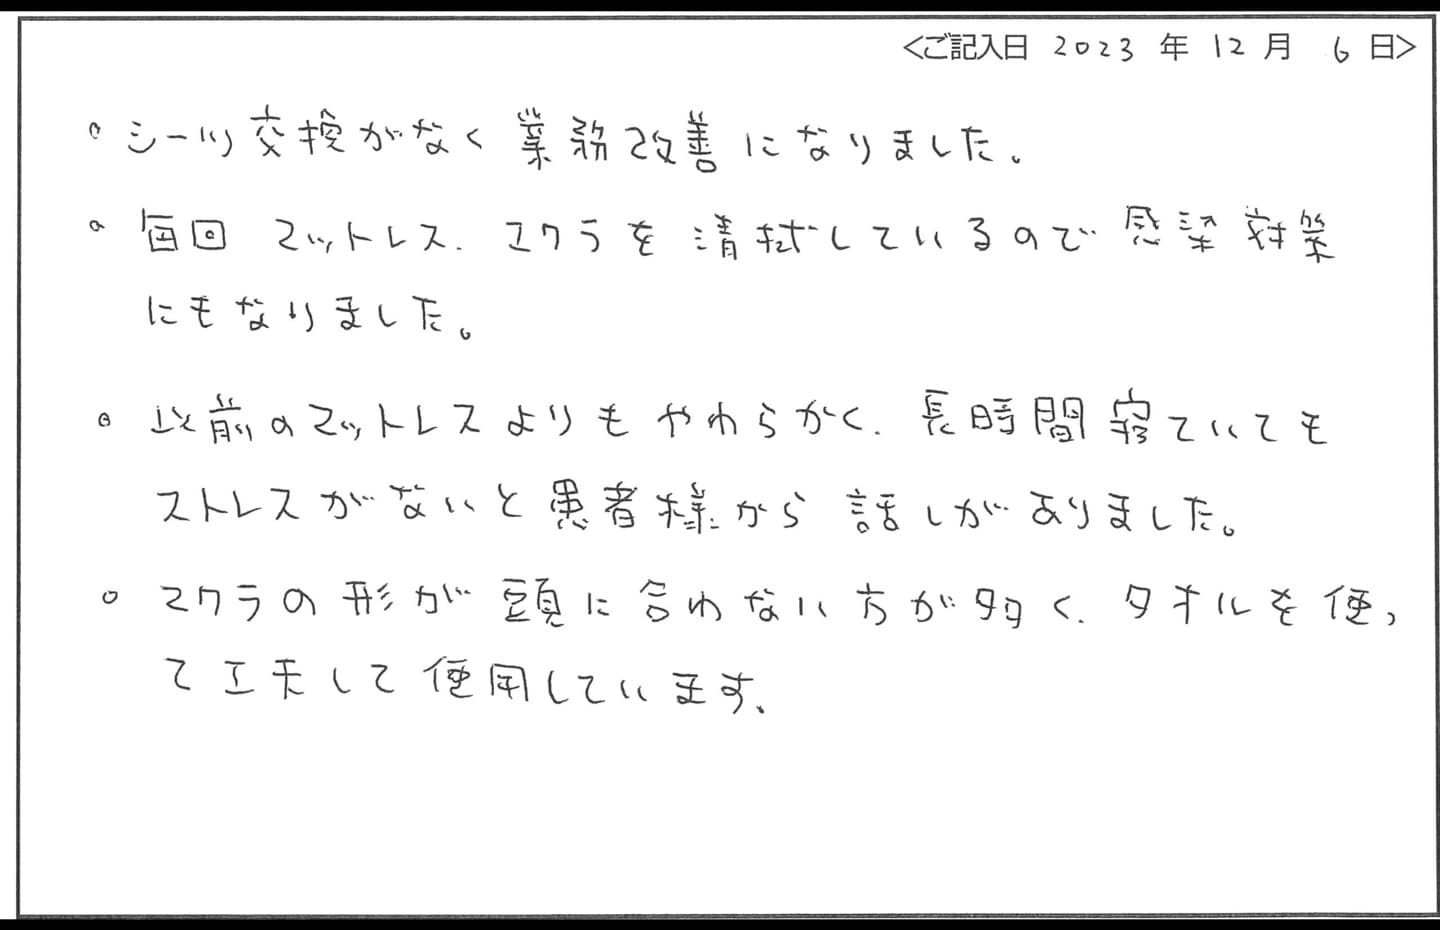 <ご記入日 2023 年 12 月 6 日>
。シーツ交換がなく業務改善になりました。
。毎回 マットレス、マクラを清拭しているので感染対策
にもなりました。
。以前のマットレスよりもやわらかく、長時間寝ていても
ストレスがないと患者様から話しがありました。
。マクラの形が頭に合わない方が多く、タオルを使っ
て工夫して使用しています、